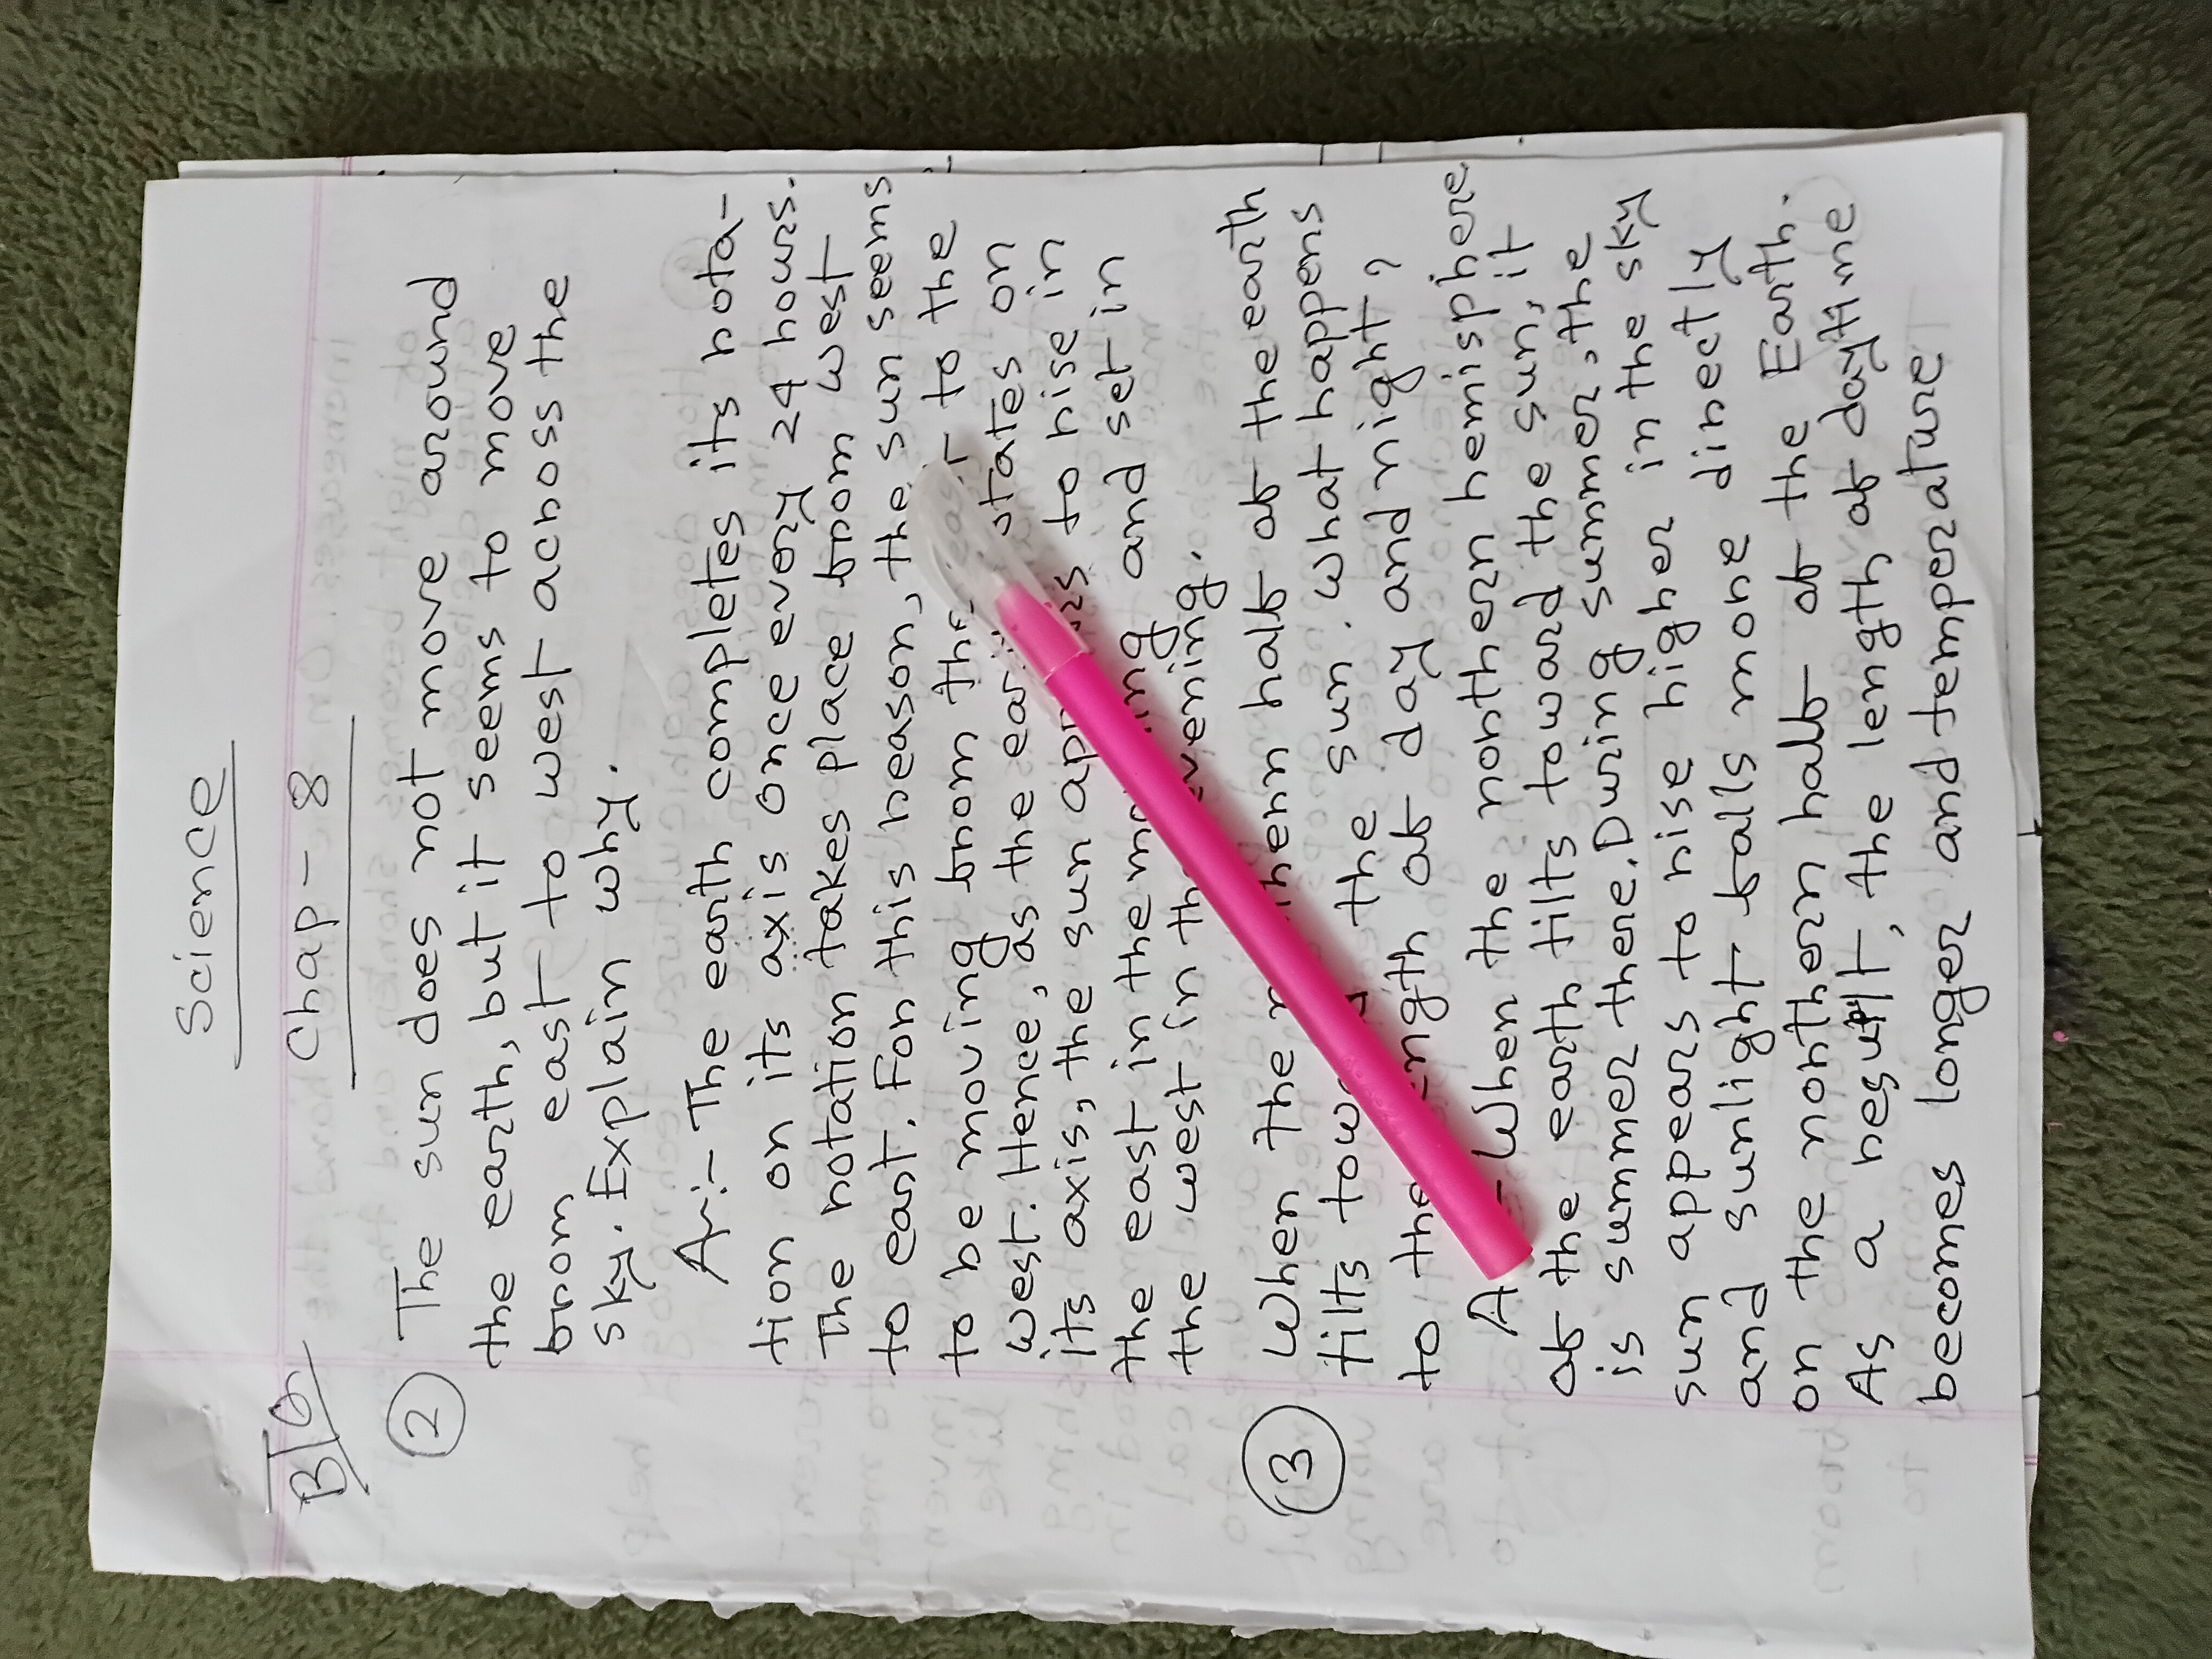 Science
Chap - 8
B/Q
2 The sun does not move around
the earth, but it seems to move
from east to west across the
sky. Explain why.
A:- The earth completes its rota-
tion on its axis once every 24 hours.
The rotation takes place from west
to east. For this reason, the sun seems
to be moving from the to the
west. Hence, as the on
its axis, the sun to rise in
the east in the and set in
the west in
3 When the half of the earth
tilts the sun. what happens
to the of day and night?
When the northern hemisphere
of the earth tilts toward the sun, it
is summer there. During summer, the
sun appears to rise higher in the sky
and sunlight falls more directly
on the northern half of the Earth.
As a result, the length of daytime
becomes longer and temperature